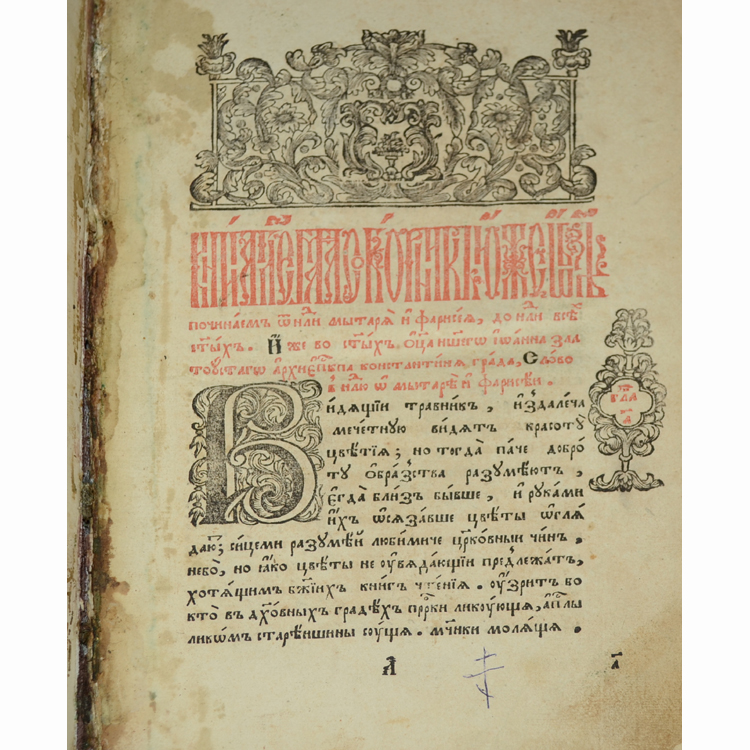 Книга глаголемая Златоуст
починаемъ ѿ нл҃и мытарѧ̀ и҆ фарисе́ѧ, до нл҃и всѣ́
ст҃ы́хъ. И҆́же во ст҃ы́хъ ѻ҆ц҃а̀ нш҃егѡ і҆ѡа́нна зла
тоу́стагѡ а҆рхїеп҇кпа константи́нѧ гра́да, Сло́во
в нл҃ю ѡ҆ мытарѣ̀ и҆ фарисе́и.
Ви́дѧщїи тра́вникъ, и҆здале́ча
мече́тную ви́дѧтъ красотꙋ̀
цвѣ́тїѧ; но тогда̀ па́че добро́
ту ѻ҆бра́зства разумѣ́ютъ,
є҆гда̀ бли́зъ бы́вше, и҆ рука́ми
и҆́хъ ѡ҆сѧза́вше цвѣ́ты ѡ҆глѧ
даю҆тъ; си́цеми разумѣ́й люби́миче цр҃ко́вныи чи́нъ.
не́бо, но ꙗ҆́кѡ цвѣ́ты не оу҆вѧда́ющїи предлежа́тъ,
хотѧ́щимъ бж҃їихъ кни́гъ чте́нїѧ. оу҆́зритъ бо
кто̀ въ дх҃о́вныхъ градѣ́хъ прⷪ҇ро́ки лику́ющѧ, а҆пⷭ҇лы
лико́мъ старѣ́ишины су́щѧ. мч҃нки молѧ́щѧ.
гла
а҃
а҃